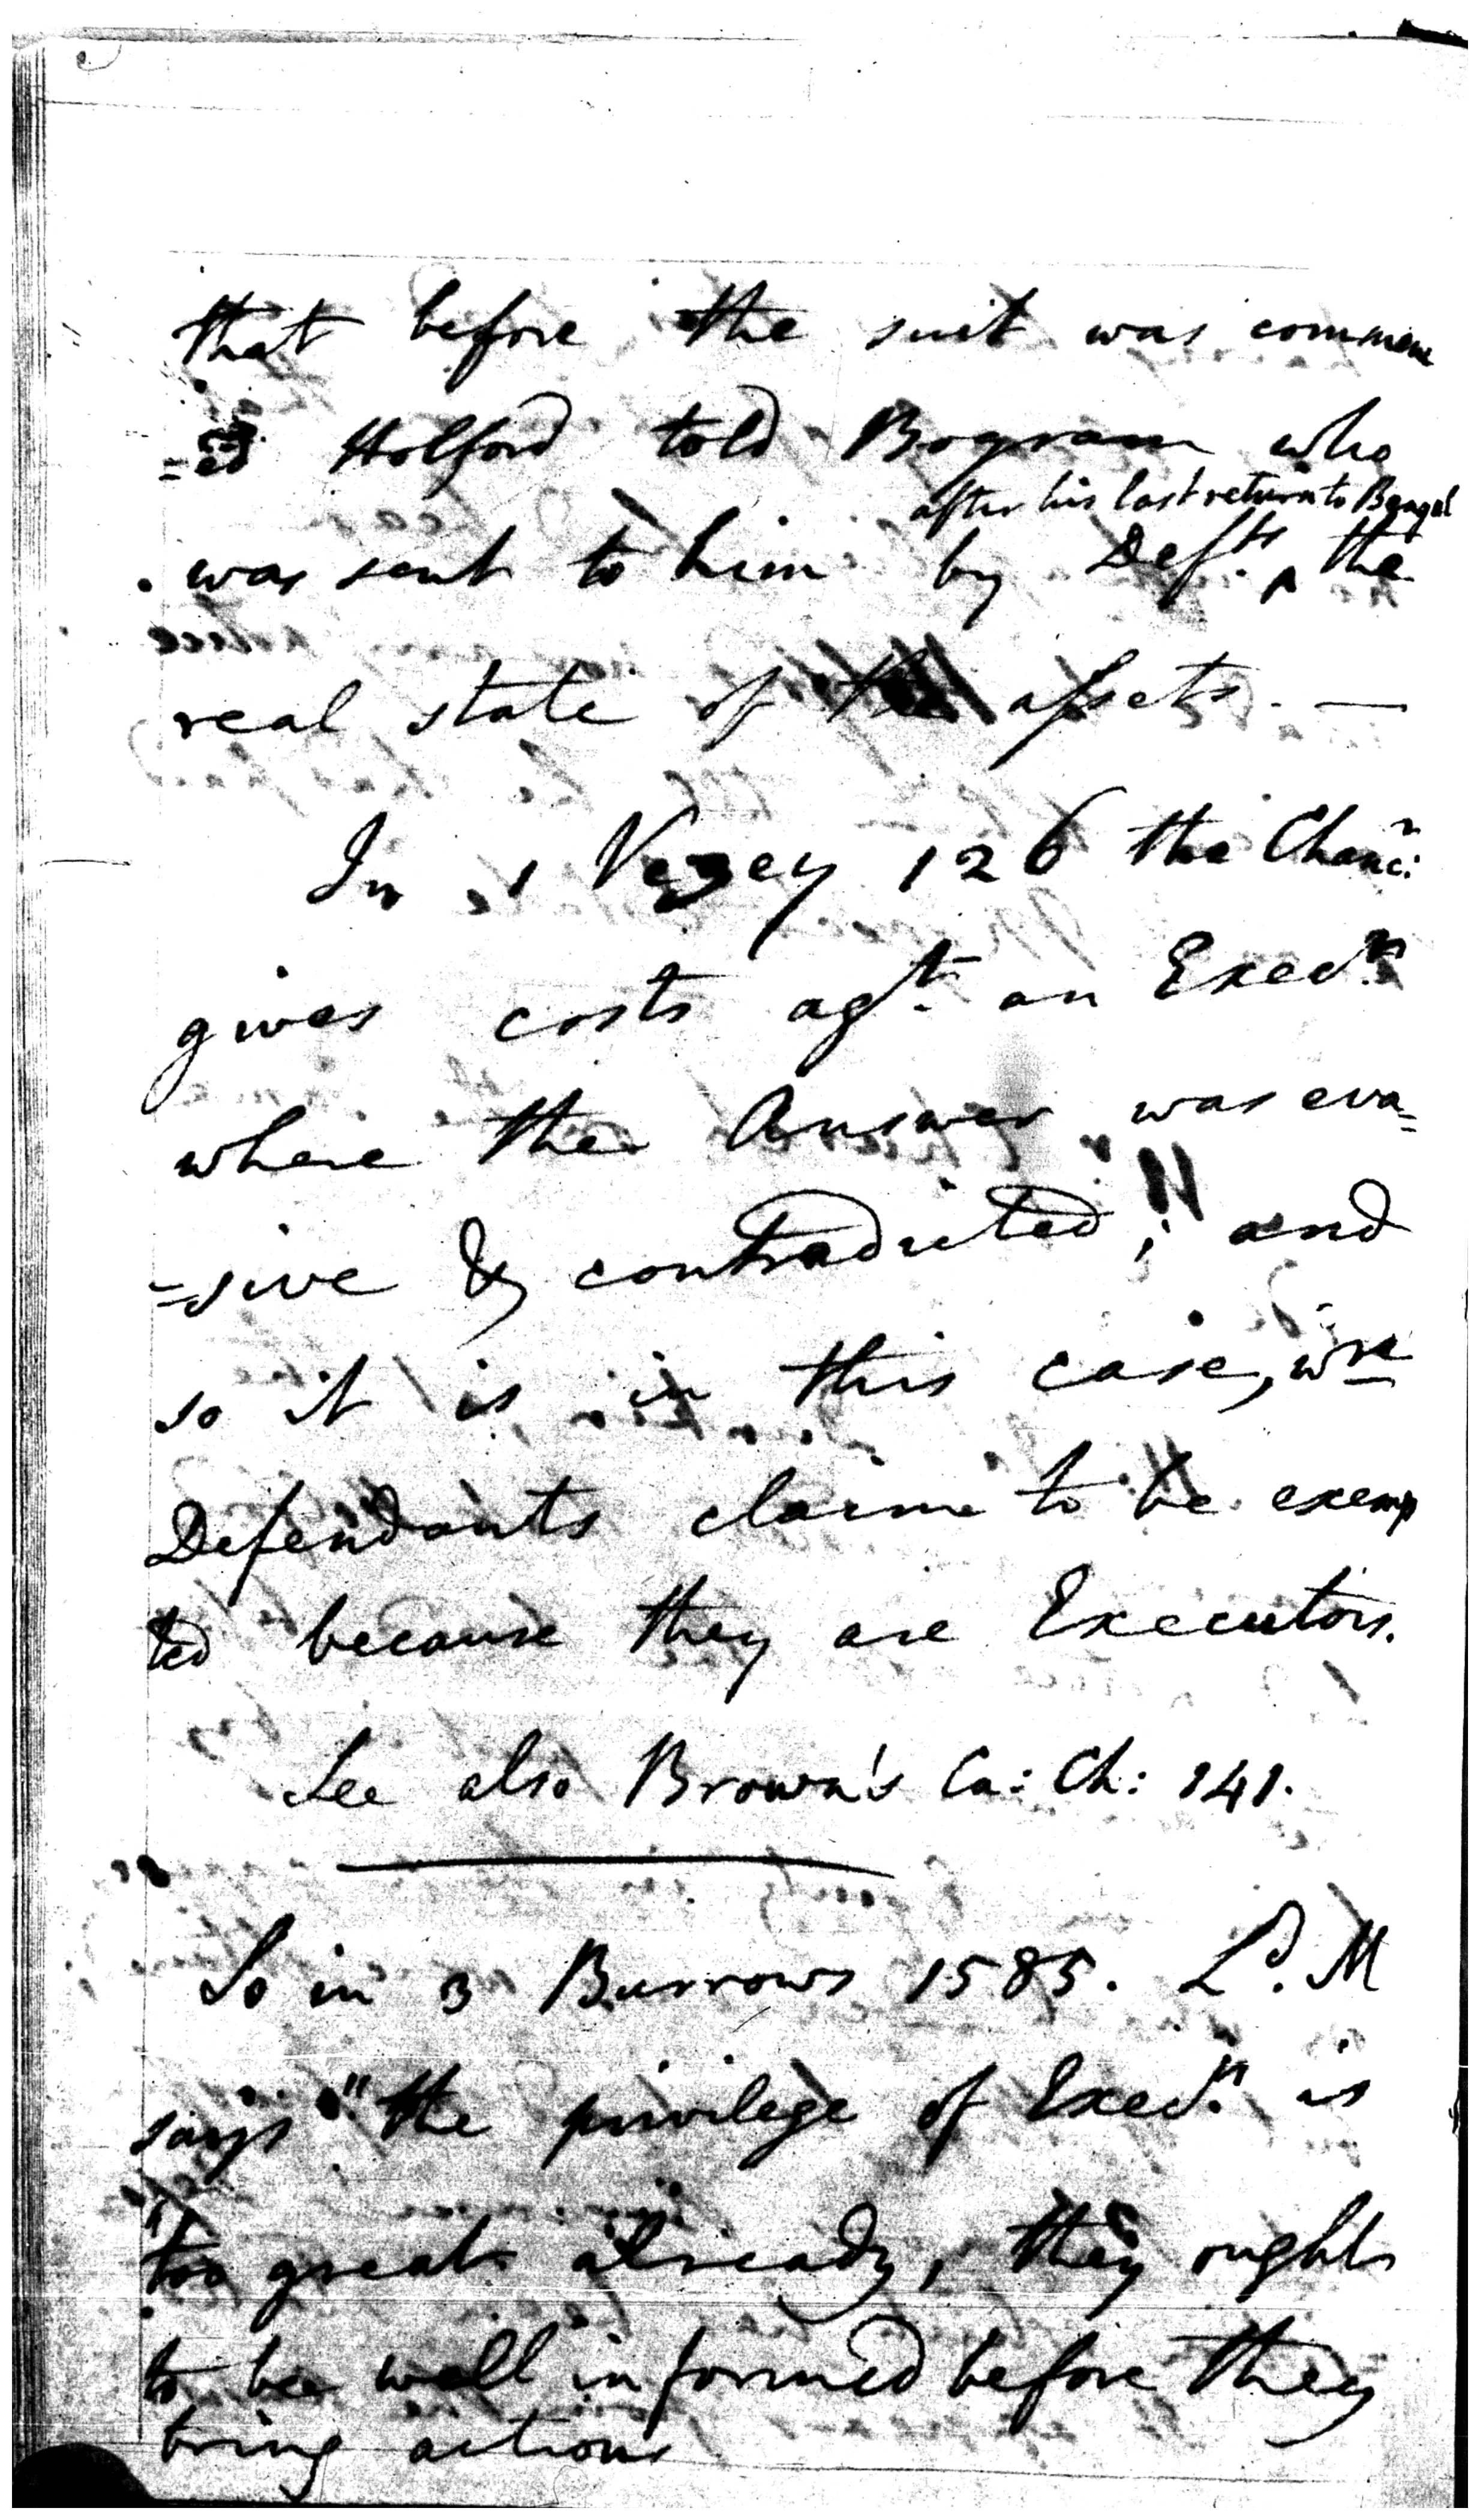 that before the suit was commenc
=ed Holford told Bogram who
after his last return to Bengal
was sent to him by Defts. ^ the
real state of the assets. —
In 1 Vezey 126 the Chancr:
gives costs agt. an Execr.
where the Answer was eva=
=sive & contradicted; and
so it is in this case, wre
Defendants claim to be exemp
ted because they are Executors.
See also Brown's Ca: Ch: 141.
So in 3 Burrows 1585. Ld. M
says "the privilege of Execrs. is
"too great already, they ought
to be well informed before they
bring actions